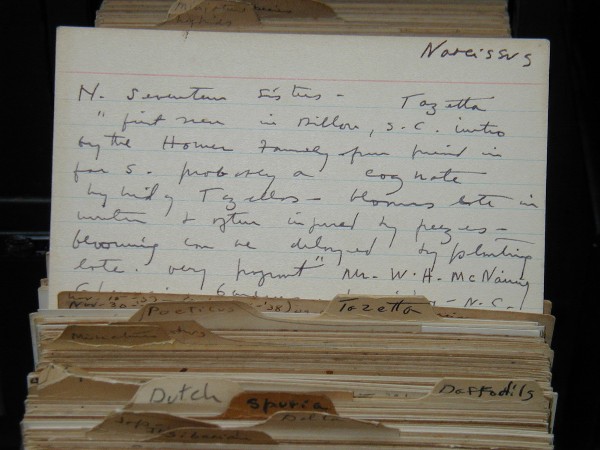 Narcissus
N. Seventeen Sisters - Tazetta
"first seen in Dillon, S.C. intro
by the Homer Family from friend in
far S. probably a cognate
hybrid of Tazettas - blooms late in
winter & often injured by freezes -
blooming can be delayed by planting
late. very fragrant" Mr. W. H.
Gardens N.C.
Poeticus
Tazetta
Dutch
Spuria
Daffodils